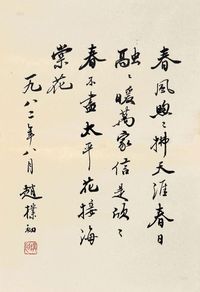 春風煦〻拂天涯春日
融〻暖萬家信是波〻
春不盡太平花接海
棠花
一九八二年八月 趙樸初